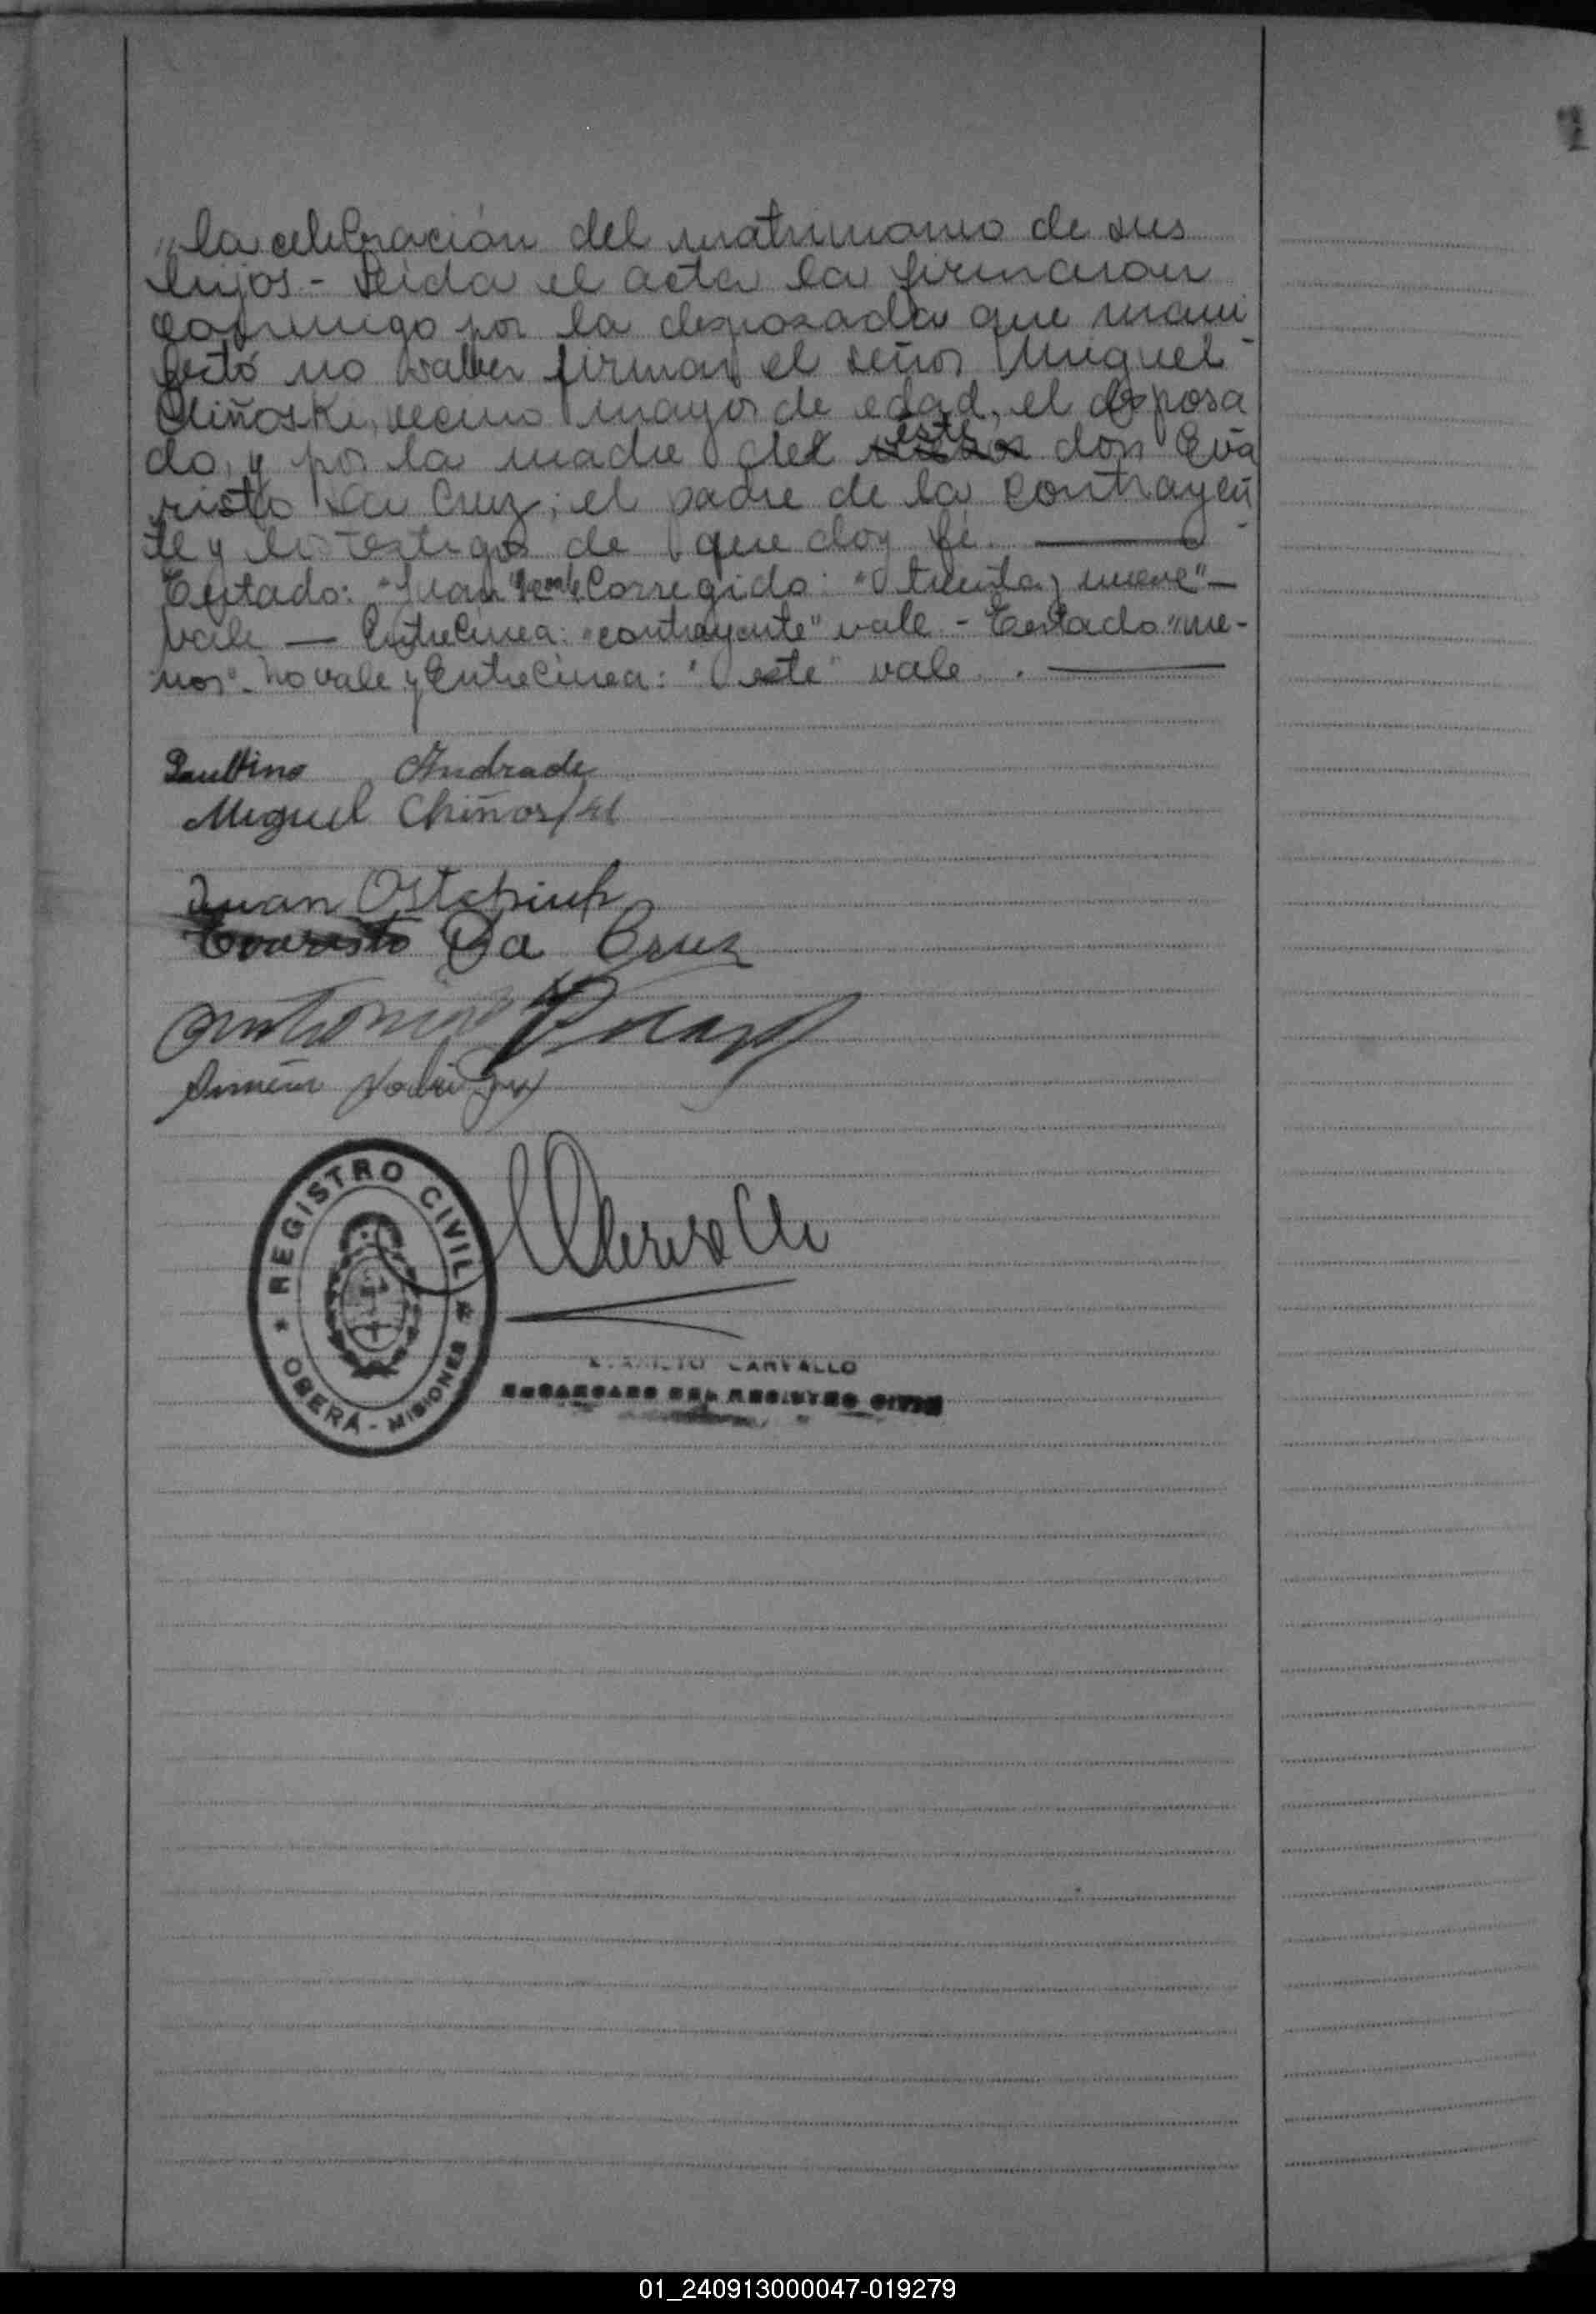 "la celebración del matrimonio de sus
hijos - Leida el acta la firmaron
conmigo por la desposada que mani
festó no saber firmar el señor Miguel
Chiñoski, vecino mayor de edad, el desposa
do, y por la madre del este don Eva
risto Da Cruz; el padre de la contrayen
te y los testigos de que doy fé.
Testado: "Juan" no vale Corregido: "treinta y nueve" -
vale — Entrelinea: "contrayente" vale - Testado "me-
nor" no vale y Entrelinea: "este" vale.
Paulino Andrade
Miguel Chiñoski
Juan Ostapiuk
Evaristo Da Cruz
Antonio
REGISTRO CIVIL
OBERÁ - MISIONES
CARVALLO
ENCARGADO DEL REGISTRO CIVIL
01_240913000047-019279